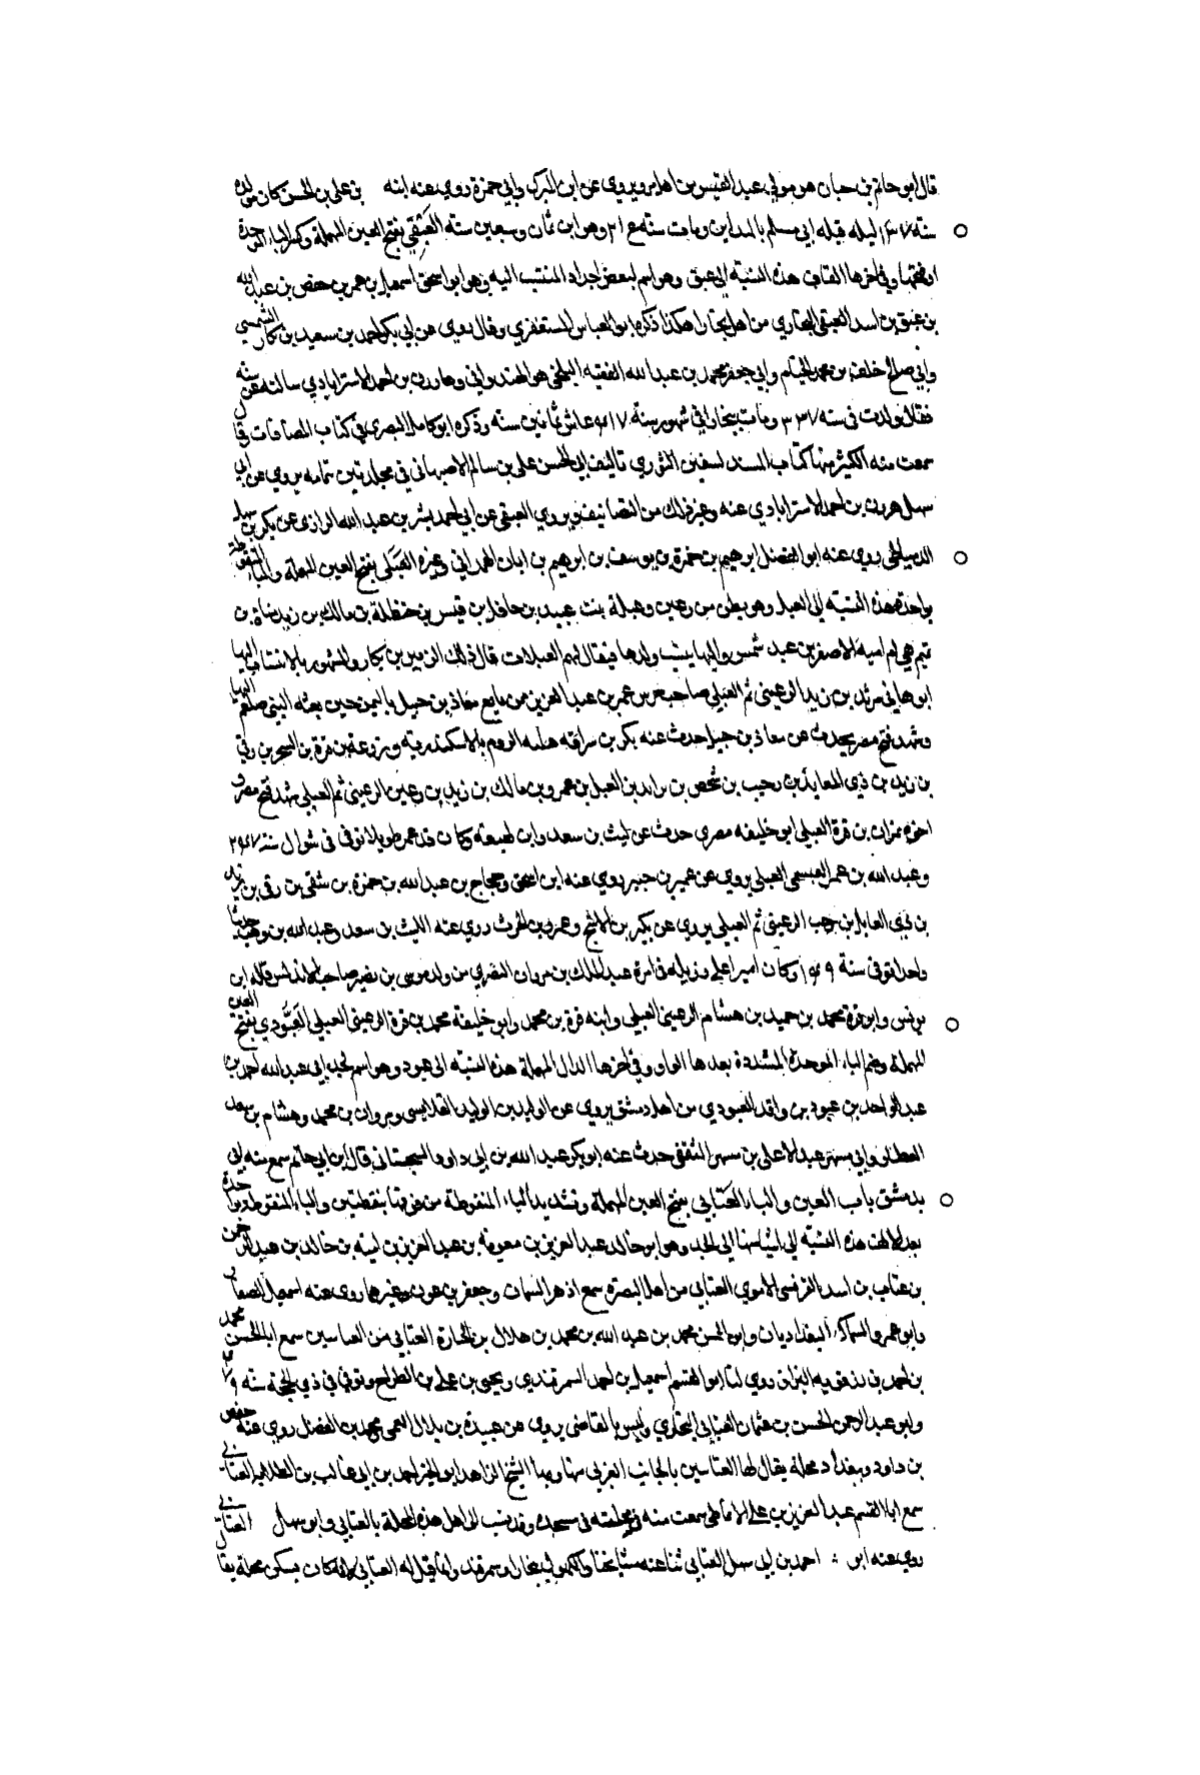 قال ابو حاتم بن حبان هو مولى عبد القيس من اهل مرو يروي عن ابن المبارك وابي حمزة روى عنه ابنه بن علي بن الحسن كان مولده
سنة ١٣٧ ليلة قتله ابي مسلم بالمداين ومات سنة وهو ابن ثمان وسبعين سنة العَبَقي بفتح العين المهملة وكسر الباء الموحدة
او فتحها وفي اخرها القاف هذه النسبة الى عبق وهو اسم لبعض اجداد المنتسب اليه وهو ابو اسحق اسمعيل بن عمر بن حفص بن عبد الله
بن عبق بن اسد العبقي البخاري من اهل بخارا هكذا ذكره ابو العباس المستغفري وقال روى عن ابي بكر احمد بن سعيد بن بكار الشمسي
وابي صالح خلف بن محمد الخيام وابي جعفر محمد بن عبد الله الفقيه البلخي هو الهندواني وهارون بن احمد الاسترابادي سالته عن سنه
فقال ولدت في سنة ٣٣٧ ومات ببخارا في شهور سنة ٤١٧ عاش ثمانين سنة وذكره ابو كامل البصري في كتاب المضافات وقال
سمعت منه الكثير منها كتاب المسند لسفين الثوري تاليف ابي الحسن علي بن سالم الاصبهاني في مجلدتين تمامه يروي عن ابي
سهل هرون بن احمد الاسترابادي عنه وغير ذلك من التصانيف ويروي العبقي عن ابي احمد بشر بن عبد الله الرازي عن بكر بن سهل
الدمياطي روى عنه ابو الفضل ابرهيم بن حمزة بن يوسف بن ابرهيم بن ابان الهمداني وغيره العَبَلي بفتح العين المهملة والباء المنقوطة
بواحدة هذه النسبة الى العبل وهو بطن من رعين وعبلة بنت عبيد بن حافل بن قيس بن حنظلة بن مالك بن زيد مناة بن
تميم هي ام امية الاصغر بن عبد شمس واليها ينسب ولدها فيقال لهم العبلات قال ذلك الزبير بن بكار والمشهور بالانتساب اليها
ابو هاني مرثد بن زيد الرعيني ثم العبلي صاحب حرس عمر بن عبد العزيز من بايع معاذ بن جبل باليمن حين بعثه النبي صلعم اليها
وشهد فتح مصر يحدث عن معاذ بن جبل حدث عنه بكر بن سراقة قتله الروم بالاسكندرية وزرعة بن قرة بن السحر بن رقي
بن زيد بن ذي العابل بن رحيب بن شخص بن زايد بن العبل بن عمرو بن مالك بن زيد بن رعين الرعيني ثم العبلي شهد فتح مصر و
اخوه عمران بن قرة العبلي ابو خليفة مصري حدث عن ليث بن سعد وابن لهيعة وكان قد عمر طويلا توفي في شوال سنة ٢٤٧
وعبد الله بن عمر العبسمي العبلي يروي عن عبيد بن جبير روى عنه ابن اسحق وحجاج بن عبد الله بن حمزة بن شفي بن رقي بن زيد
بن ذي العابل بن رحيب الرعيني ثم العبلي يروي عن بكير بن الاشج وعمرو بن الحرث روى عنه الليث بن سعد وعبد الله بن وهب حديثا
واحدا توفي سنة ١٤٩ وكان اميرا على في امرة عبد الملك بن مروان النصري من ولد موسى بن نصير صاحب الاندلس قاله ابن
يونس وابو قرة محمد بن حميد بن هشام الرعيني العبلي وابنه قرة بن محمد وابو خليفة محمد بن قرة الرعيني العبلي العَبُّودي بفتح العين
المهملة وضم الباء الموحدة المشددة بعدها الواو وفي اخرها الدال المهملة هذه النسبة الى عبود وهو اسم لجد ابي عبد الله احمد بن
عبد الواحد بن عبود بن واقد العبودي من اهل دمشق يروي عن الوليد بن الوليد القلانسي ومروان بن محمد وهشام بن سعد
العطار وابي مسهر عبد الاعلى بن مسهر الثقفي حدث عنه ابو بكر عبد الله بن ابي داود السجستاني قال ابن ابي حاتم سمع منه ابي
بدمشق باب العين والتاء العَتّابي بفتح العين المهملة وتشديد التاء المنقوطة من فوقها بنقطتين والباء المنقوطة بواحدة
بعد الالف هذه النسبة الى اشياء منها الى الجد وهو ابو خالد عبد العزيز بن معوية بن عبد العزيز بن امية بن خالد بن عبد الرحمن
بن عتاب بن اسد القرشي الاموي العتابي من اهل البصرة سمع ازهر السمان وجعفر بن عون وغيرهما روى عنه اسمعيل الصفار
وابو عمرو السماك البغداديان وابو الحسن محمد بن عبد الله بن محمد بن هلال بن العتابي من العتابيين سمع ابا الحسن محمد
بن احمد بن رزقويه البزاز روى لنا ابو القسم اسمعيل بن احمد السمرقندي ويحيى بن علي بن الطراح وتوفي في ذي الحجة سنة
وابو عبد الرحمن الحسن بن عثمان العتابي البخاري وليس بالقاضي يروي عن عبيدة بن بلال العمي محمد بن الفضل روى عنه حفص
بن داود وببغداد محلة يقال لها العتابيين بالجانب الغربي منها وبها الشيخ الزاهد ابو الخير احمد بن ابي غالب بن الطلاية العتابي
سمع ابا القسم عبد العزيز بن علي الانماطي سمعت منه في محلته في مسجده وقد ينسب الى اهل هذه المحلة بالعتابي وابو سهل العتابي
روى عنه ابو احمد بن ابي سهل العتابي ثنا عنه مشايخنا والكهول ببخارا وسمرقند وانما قيل له العتابي لانه كان يسكن محلة يقا